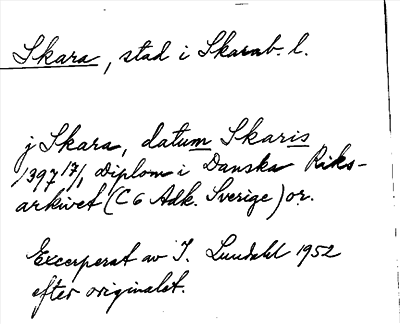 Skara, stad i Skarab. l.
j Skara, datum Skaris
1397 17/1, Diplom i Danska Riks-
arkivet (C 6 Adk. Sverige) or.
Excerperat av I. Lundahl 1952
efter originalet.